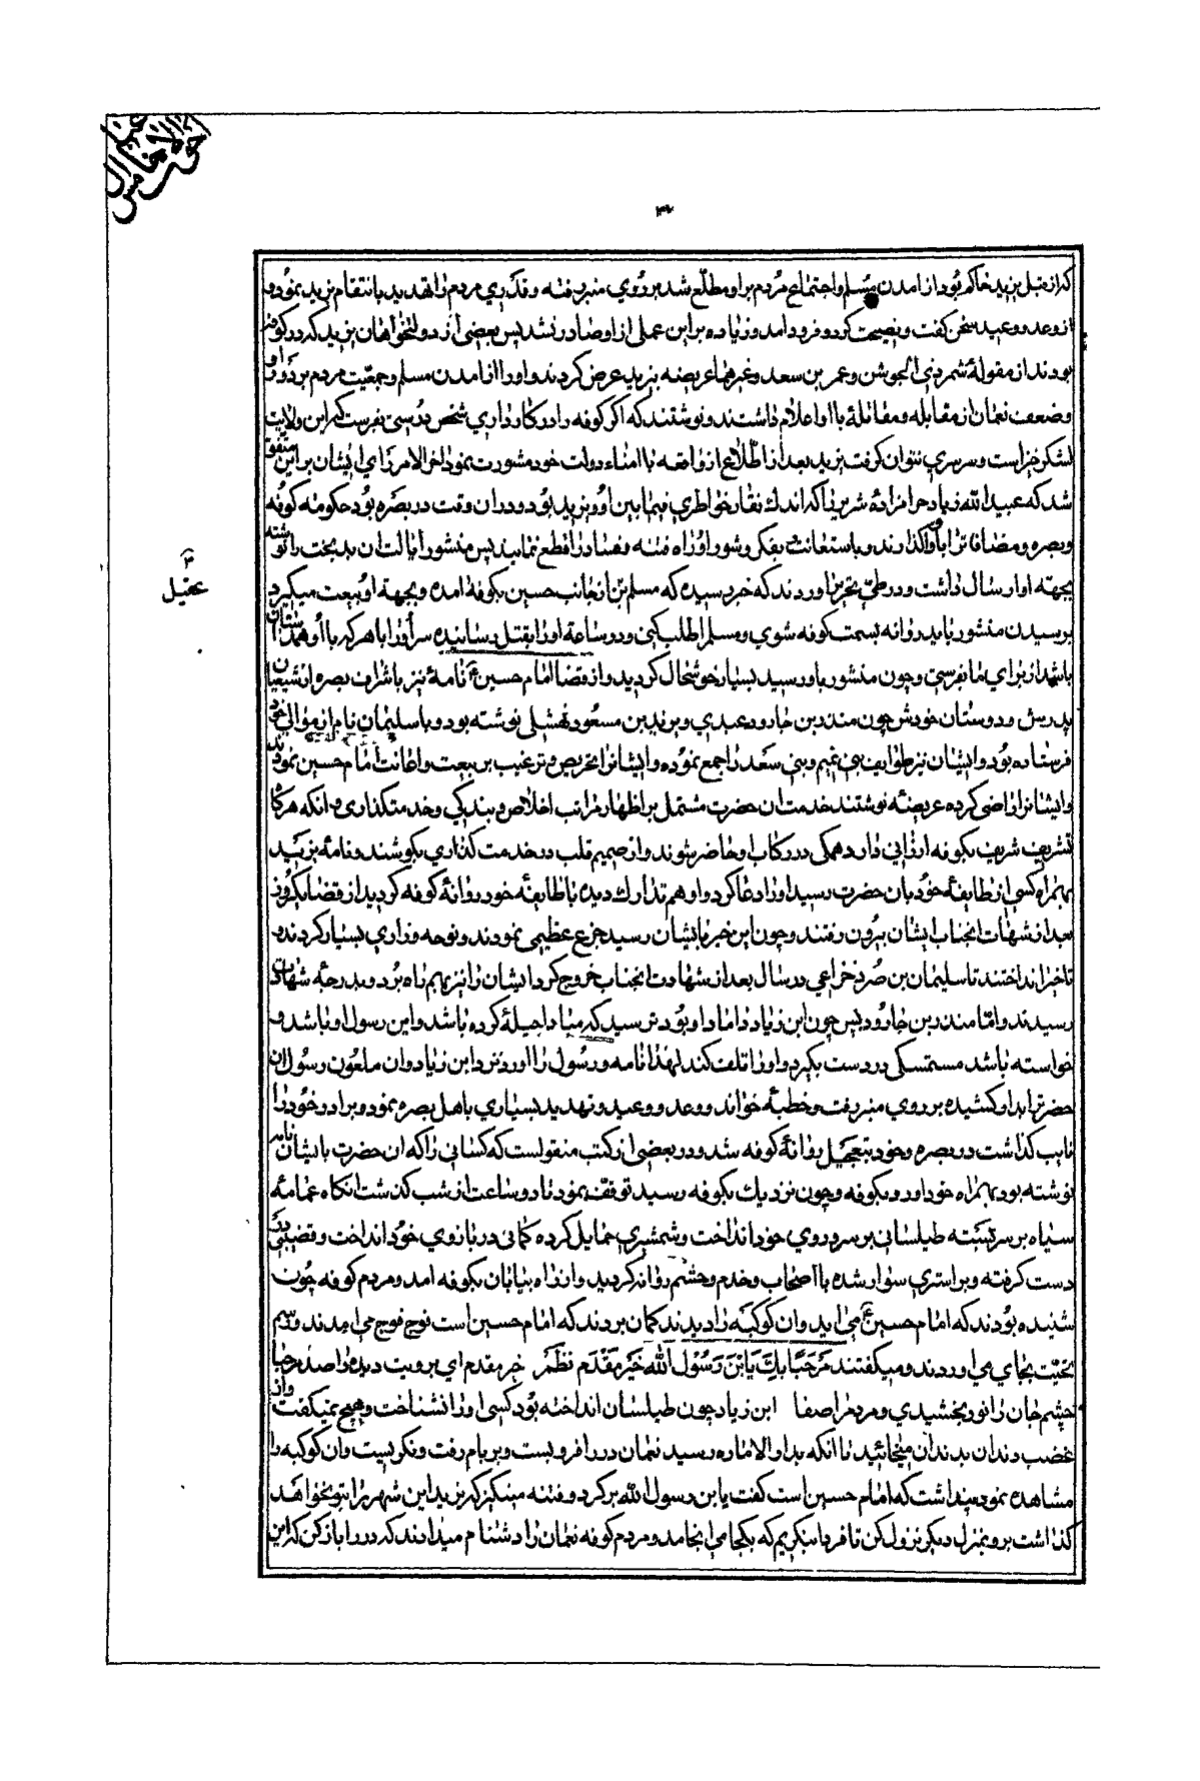 ۳۲
که از قبل یزید حاکم بود از امدن مسلم و اجتماع مردم بر او مطلع شد بر روی منبر رفته و قدری مردم را تهدید بانتقام یزید نموده و
از وعد و وعید سخن گفت و نصیحت کرد و فرود امد و زیاده بر این عملی از او صادر نشد پس بعضی از دولتخواهان یزید که در کوفه
بودند از مقوله شمر ذی الجوشن و عمر بن سعد و غیرهما عریضه بیزید عرض کردند و او را از امدن مسلم و جمعیت مردم بر دور او
و ضعف نعمان از مقابله و مقاتله با او اعلام داشتند و نوشتند که اگر کوفه را در کار داری شخص درستی بفرست که این ولایت
لشکر خیز است و سرسری نتوان گرفت یزید بعد از اطلاع از واقعه با امناء دولت خود مشورت نمود اخر الامر رای ایشان بر این متفق
شد که عبید الله زیاد حرامزاده شریر را که اندک نقار خواطری فیما بین او و یزید بود و در ان وقت در بصره بود حکومته کوفه
و بصره و مضافاترا باو واگذارند و باستعانت بفکر و شور او راه فتنه و فساد را قطع نمایند پس منشور ایالت ان بدبخت را نوشته
بجهته او ارسال داشت و در طی تحریر اوردند که خبر رسیده که مسلم بن از جانب حسین بکوفه امده و بجهة او بیعت میگیرد
عقیل
برسیدن منشور باید روانه بسمت کوفه شوی و مسلم را طلب کنی و در ساعة او را بقتل رسانیده سر او را با هر که با او همداستان
باشد از برای ما بفرستی و چون منشور باو رسید بسیار خوشحال گردید و از قضا امام حسین نامه نیز باشراف بصره از شیعیان
پدرش و دوستان خودش چون منذر بن جارود عبدی و یزید بن مسعود نهشلی نوشته بود و با سلیمان نام از موالی خود
فرستاده بود و ایشان نیز طوایف بنی تمیم و بنی سعد را جمع نموده و ایشانرا تحریص و ترغیب بر بیعت و اعانت امام حسین نمودند
و ایشانرا راضی کرده عریضه نوشتند خدمت ان حضرت مشتمل بر اظهار مراتب اخلاص و بندگی و خدمتگذاری و انکه هر گاه
تشریف شریف بکوفه ارزانی دارد همگی در رکاب او حاضر شوند و از صمیم قلب در خدمت گذاری بکوشند و نامه یزید
بهمراه کسی از طایفه خود بان حضرت رسید او را دعا کرد و او هم تدارک دیده با طایفه خود روانه کوفه گردید از قضا یکروز
بعد از شهادت انجناب ایشان بیرون رفتند و چون این خبر بایشان رسید جزع عظیمی نمودند و نوحه و زاری بسیار کردند و
تاخیر انداختند تا سلیمان بن صرد خزاعی در سال بعد از شهادت انجناب خروج کرد ایشان را نیز بهمراه برد و بدرجه شهادت
رسیدند و اما منذر بن جارود پس چون ابن زیاد داماد او بود ترسید که مبادا حیله کرده باشد و این رسول او باشد و
خواسته باشد مستمسکی در دست بگیرد و او را تلف کند لهذا نامه و رسول را اورد نزد ابن زیاد و ان ملعون رسول ان
حضرترا بدار کشیده بر روی منبر رفت و خطبه خواند و وعد و وعید و تهدید بسیاری باهل بصره نمود و برادر خود را
نایب گذاشت در بصره و خود بتعجیل روانه کوفه شد و در بعضی از کتب منقولست که کسانی را که ان حضرت بایشان نامه
نوشته بود بهمراه خود اورد بکوفه و چون نزدیک بکوفه رسید توقف نمود تا دو ساعت از شب گذشت انگاه عمامه
سیاه بر سر بسته طیلسانی بر سر و روی خود انداخت و شمشیری حمایل کرده کمانی در بازوی خود انداخت و قضیبی در
دست گرفته و بر استری سوار شده با اصحاب و خدم و حشم روانه گردید و از راه بیابان بکوفه امد و مردم کوفه چون
شنیده بودند که امام حسین می اید و ان کوکبه را دیدند گمان بردند که امام حسین است فوج فوج می امدند و رسم
تحیت بجای می اوردند و میگفتند مَرحَبًا بِكَ يَابنَ رَسُولِ اللهِ خَيرَ مَقدَم نظم خیر مقدم ای برویت دیده را صد مرحبا
چشم جان را نور بخشیدی و مردم را صفا ابن زیاد چون طیلسان انداخته بود کسی او را نشناخت و هیچ نمیگفت و از
غضب دندان بدندان میخائید تا انکه بدار الاماره رسید نعمان در را فرو بست و بر بام رفت و نگریست و ان کوکبه را
مشاهده نمود پنداشت که امام حسین است گفت یابن رسول الله برگرد و فتنه مینگیز که یزید این شهر را بتو نخواهد
گذاشت برو بمنزل دیگر نزول کن تا فردا بنگریم که بکجا می انجامد و مردم کوفه نعمان را دشنام میدادند که در را باز کن که این